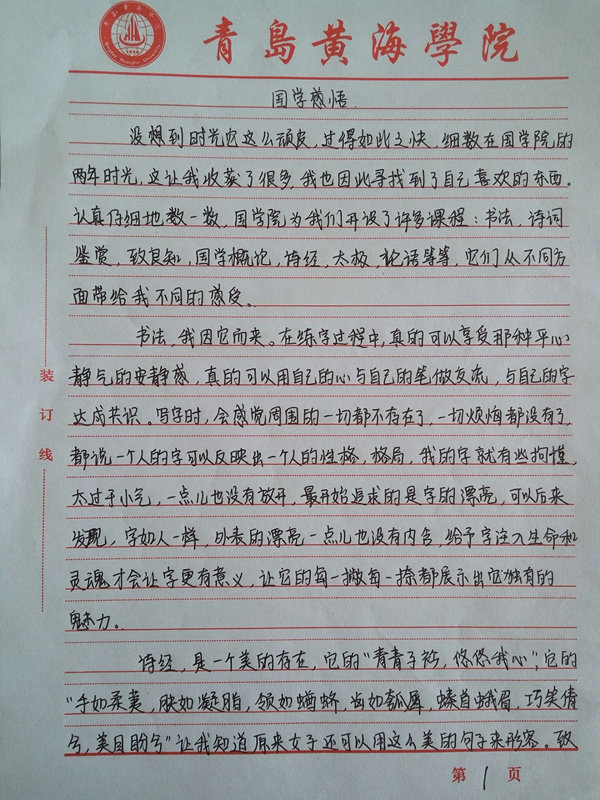 青島黄海學院
国学感悟.
没想到时光它这么顽皮，过得如此之快，细数在国学院的
两年时光，这让我收获了很多，我也因此寻找到了自己喜欢的东西。
认真仔细地数一数，国学院为我们开设了许多课程：书法，诗词
鉴赏，致良知，国学概论，诗经，太极，论语等等，它们从不同方
面带给我不同的感受。
书法，我因它而来。在练字过程中，真的可以享受那种平心
静气的安静感，真的可以用自己的心与自己的笔做交流，与自己的字
达成共识。写字时，会感觉周围的一切都不存在了，一切烦恼都没有了，
都说一个人的字可以反映出一个人的性格，格局，我的字就有些拘谨，
太过于小气，一点儿也没有放开，最开始追求的是字的漂亮，可以后来
发现，字如人一样，外表的漂亮一点儿也没有内含，给予字注入生命和
灵魂才会让字更有意义，让它的每一撇每一捺都展示出它独有的
魅力。
诗经，是一个美的存在，它的“青青子衿，悠悠我心”，它的
“手如柔荑，肤如凝脂，领如蝤蛴，齿如瓠犀，螓首蛾眉，巧笑倩
兮，美目盼兮”让我知道原来女子还可以用这么美的句子来形容。致
装
订
线
第 1 页